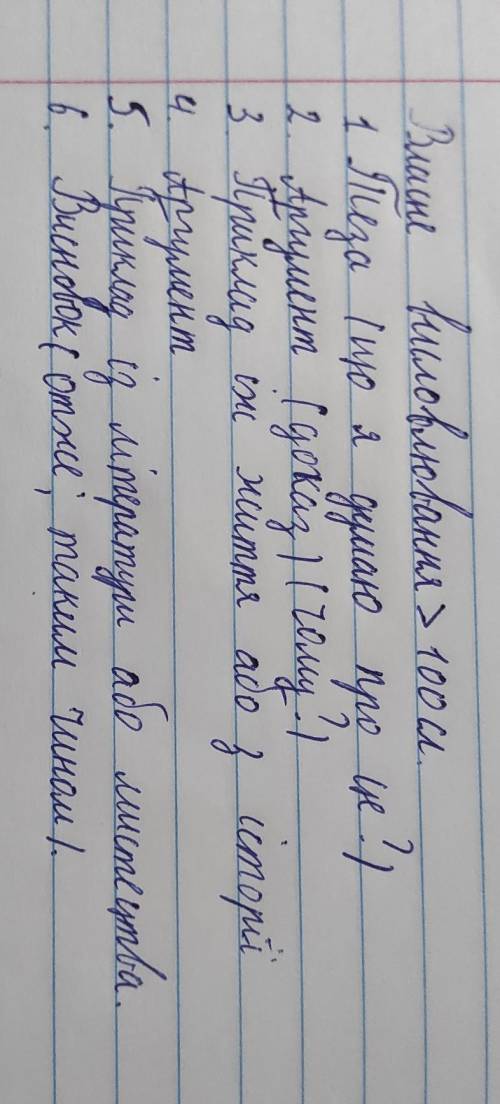 Власне висловлювання > 100 сл.
1 Теза (що я думаю про це?)
2. Аргумент (доказ) (чому?)
3 Приклад їж життя або з історії
4. Аргумент
5. Приклад із літератури або мистецтва.
6. Висновок (отже, таким чином).